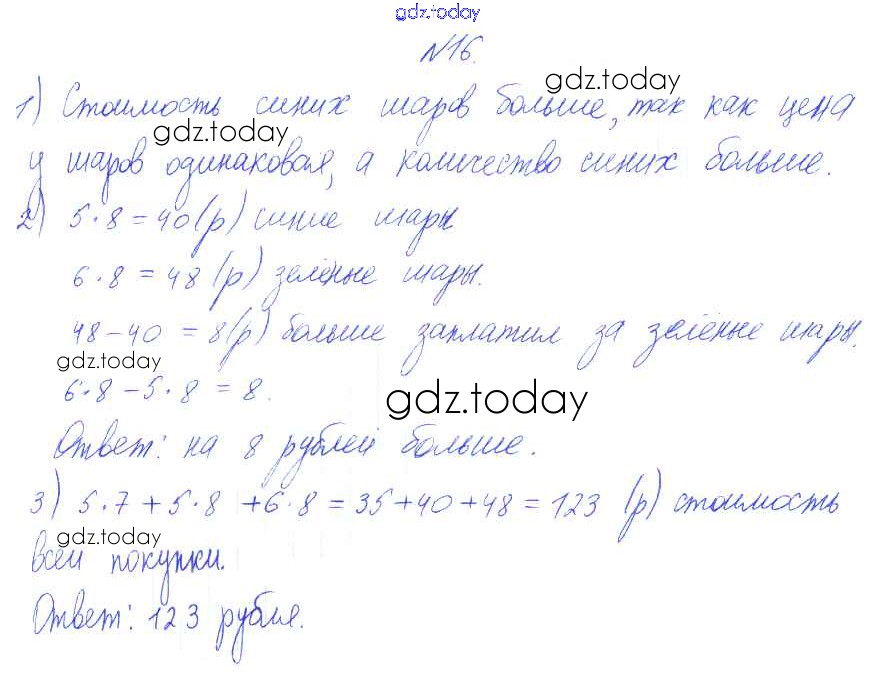 gdz.today
№16.
gdz.today
1) Стоимость синих шаров больше, так как цена
gdz.today
у шаров одинаковая, а количество синих больше.
2) 5·8=40(р) синие шары
6·8=48(р) зелёные шары.
48-40=8(р) больше заплатил за зелёные шары.
gdz.today
6·8-5·8=8.
gdz.today
Ответ: на 8 рублей больше.
3) 5·7+5·8+6·8=35+40+48=123 (р) стоимость
gdz.today
всей покупки.
Ответ: 123 рубля.
gdz.today